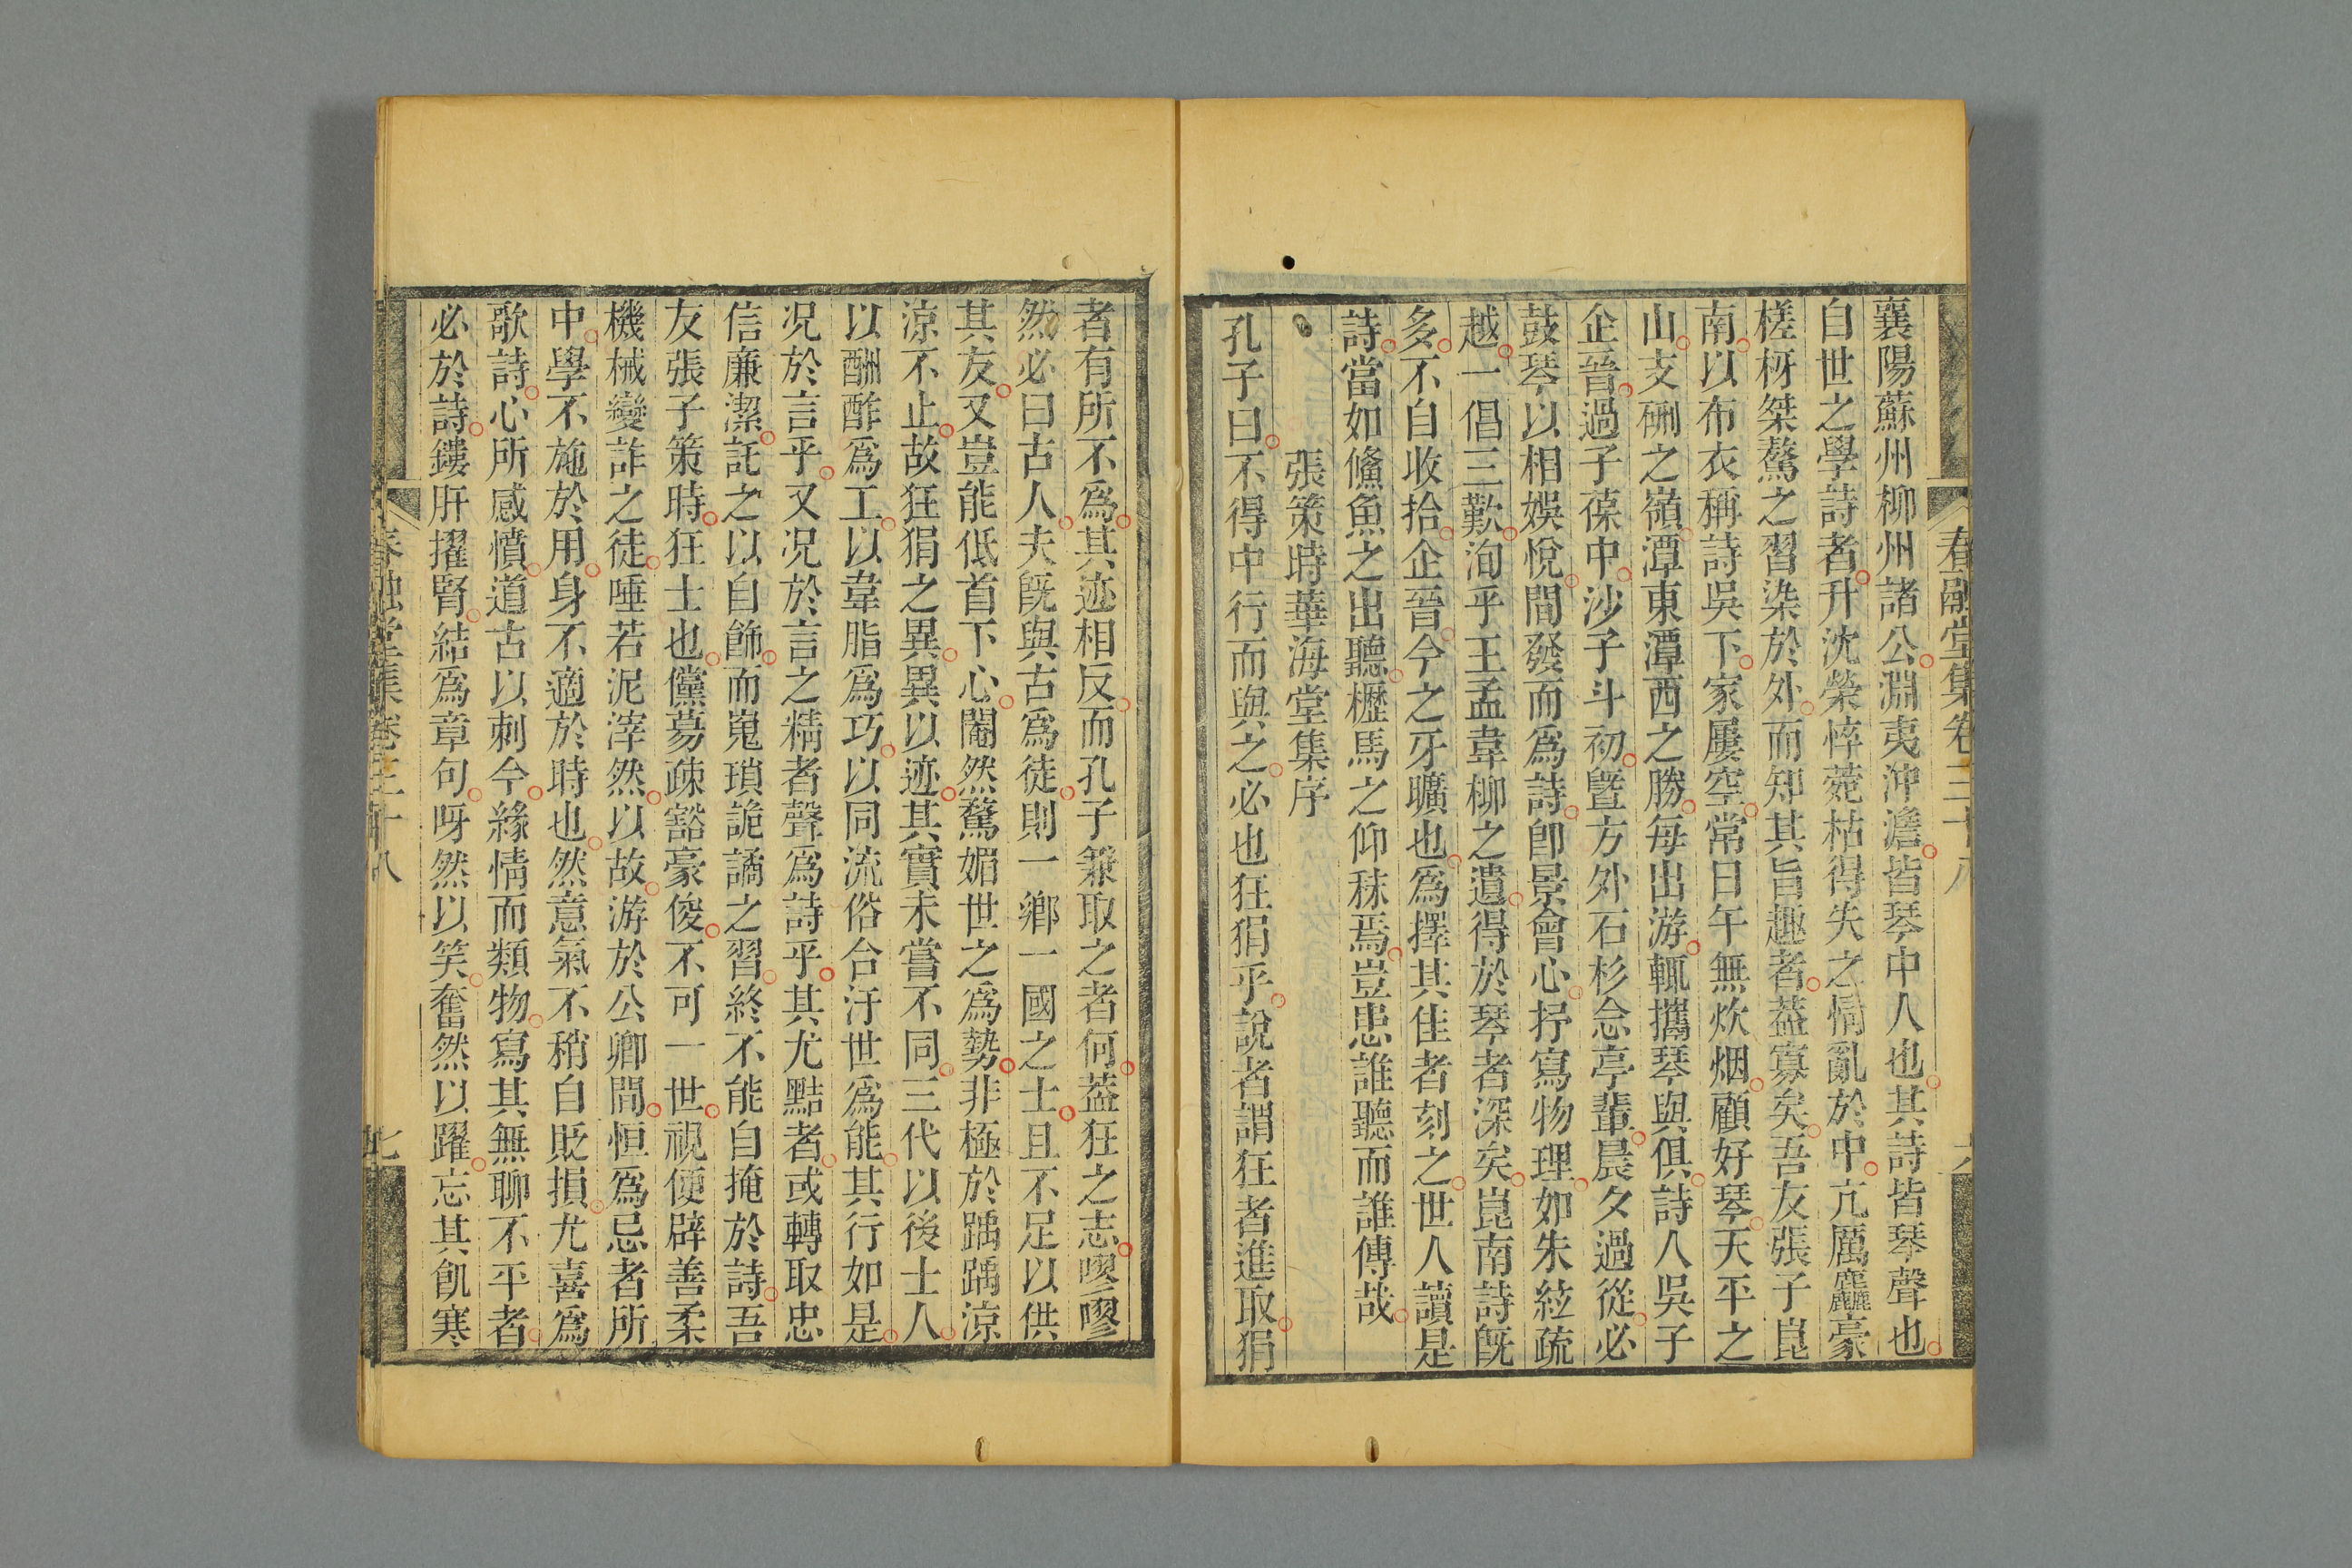 春融堂集卷三十八
襄陽蘇州柳州諸公淵夷沖澹皆琴中人也其詩皆琴聲也
自世之學詩者升沈榮悴菀枯得失之情亂於中亢厲麤豪
槎枒桀驁之習染於外而知其旨趣者葢寡矣吾友張子崑
南以布衣稱詩吳下家屢空常日午無炊烟顧好琴天平之
山支硎之嶺潭東潭西之勝每出游輒攜琴與俱詩人吳子
企晉過子葆中沙子斗初曁方外石杉念亭輩晨夕過從必
鼓琴以相娛悅間發而爲詩卽景會心抒寫物理如朱絃疏
越一倡三歎洵乎王孟韋柳之遺得於琴者深矣崑南詩旣
多不自收拾企晉今之牙曠也爲擇其佳者刻之世人讀是
詩當如鱐魚之出聽櫪馬之仰秣焉豈患誰聽而誰傳哉
張策時華海堂集序
孔子曰不得中行而與之必也狂狷乎說者謂狂者進取狷
者有所不爲其迹相反而孔子兼取之者何葢狂之志嘐嘐
然必曰古人夫旣與古爲徒則一鄉一國之士且不足以供
其友又豈能低首下心閹然騖媚世之爲勢非極於踽踽涼
涼不止故狂狷之異異以迹其實未嘗不同三代以後士人
以酬酢爲工以韋脂爲巧以同流俗合汙世爲能其行如是
况於言乎又况於言之精者聲爲詩乎其尤黠者或轉取忠
信廉潔託之以自飾而嵬瑣詭譎之習終不能自掩於詩吾
友張子策時狂士也儻蕩疎豁豪俊不可一世視便辟善柔
機械變詐之徒唾若泥滓然以故游於公卿間恒爲忌者所
中學不施於用身不適於時也然意氣不稍自貶損尤喜爲
歌詩心所感憤道古以刺今緣情而類物寫其無聊不平者
必於詩鏤肝擢腎結爲章句呀然以笑奮然以躍忘其飢寒
春融堂集卷三十八
七